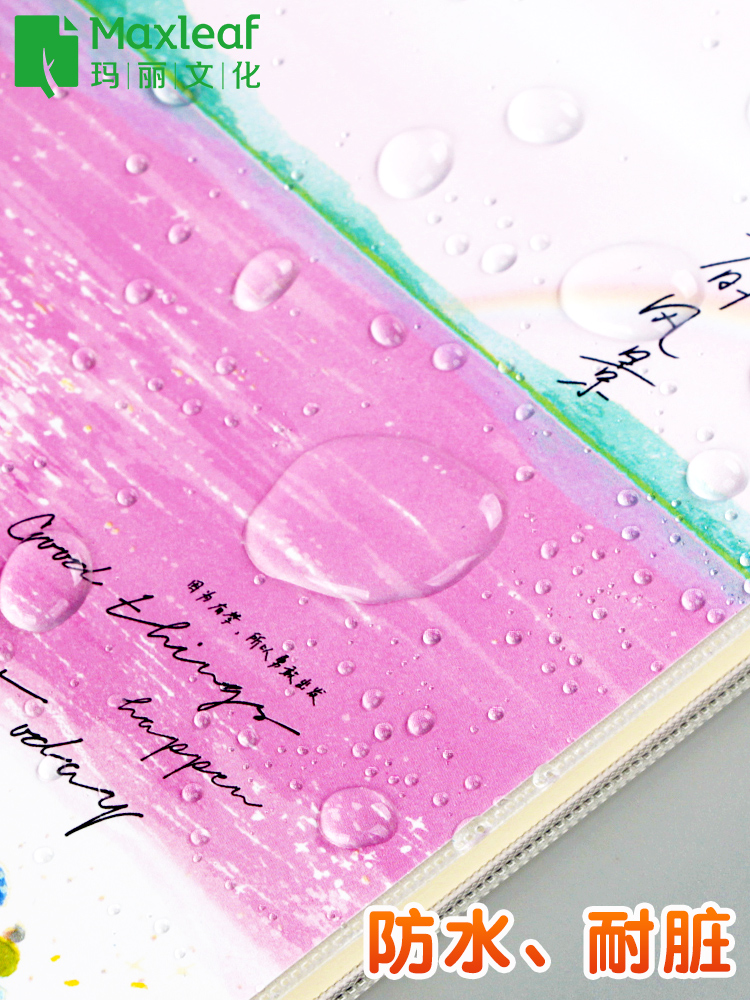 Maxleaf
玛丽文化
风景
Good
things
因为有梦，所以勇敢出发
happen
oday
防水、耐脏